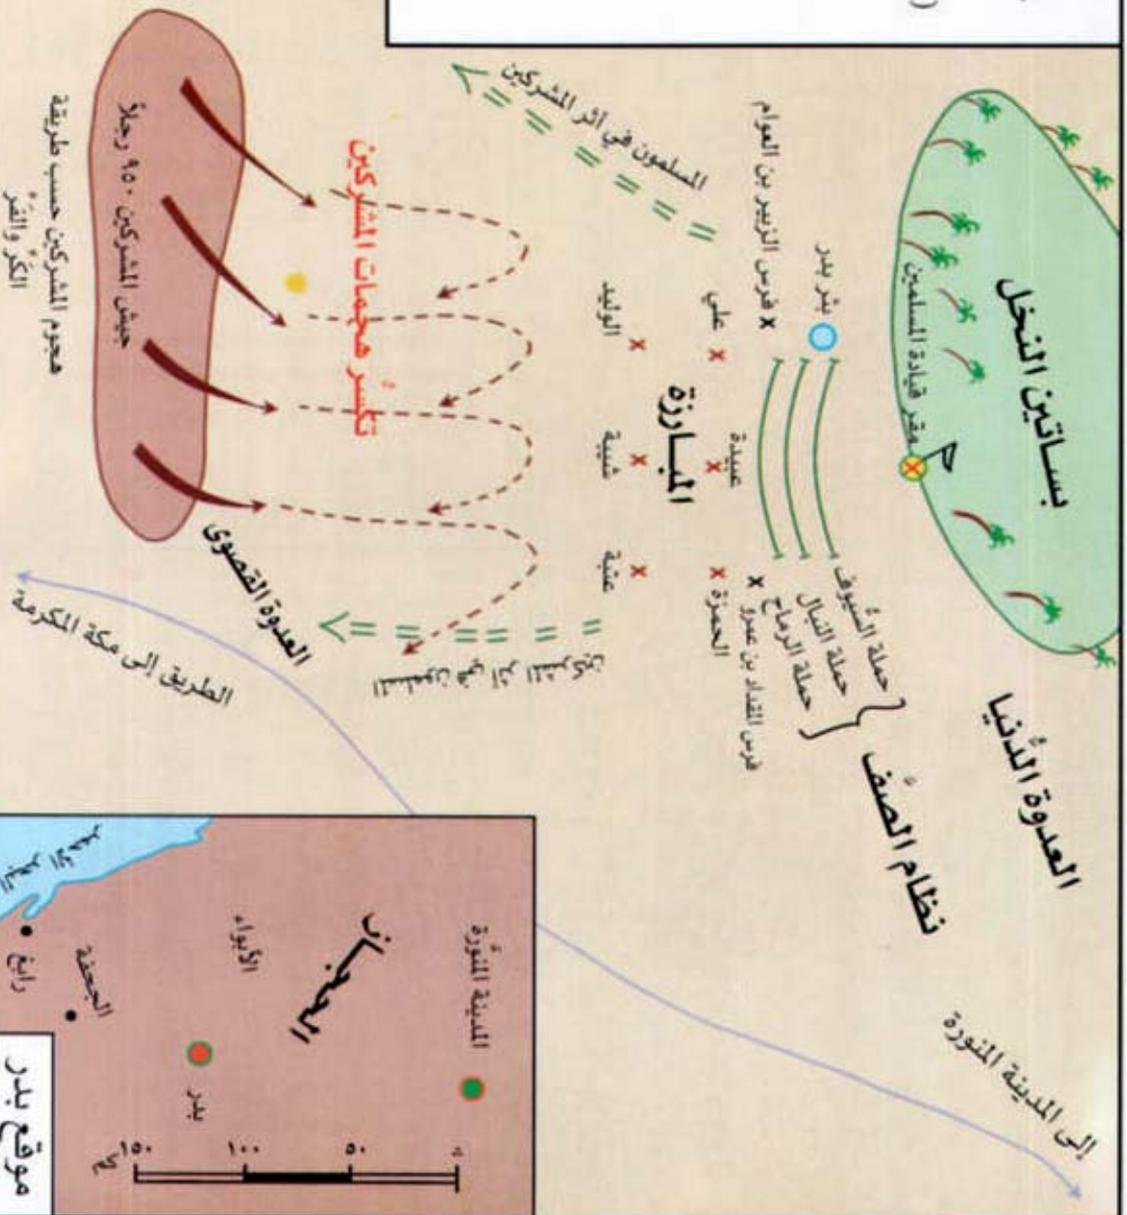 بساتين النخل
مقر قيادة المسلمين
العدوة الدُنيا
نظام الصف
حملة السُيوف
حملة النبال
حملة الرماح
بئر بدر
فرس الزبير بن العوام x
x فرس المقداد بن عمرو
علي
عبيدة
الحمزة
المبارزة
الوليد
شيبة
عتبة
المسلمون في أثر المشركين
المسلمون في أثر المشركين
تكسُّر هجمات المشركين
جيش المشركين ٩٥٠ رجلاً
هجوم المشركين حسب طريقة
الكرّ والفَرّ
العدوة القصوى
الطريق إلى مكة المكرمة
إلى المدينة المنورة
المدينة المنورة
الحجاز
الأبواء
بدر
الجحفة
رابغ
البحر الأحمر
٠ ٥٠ ١٠٠ ١٥٠ كم
موقع بدر